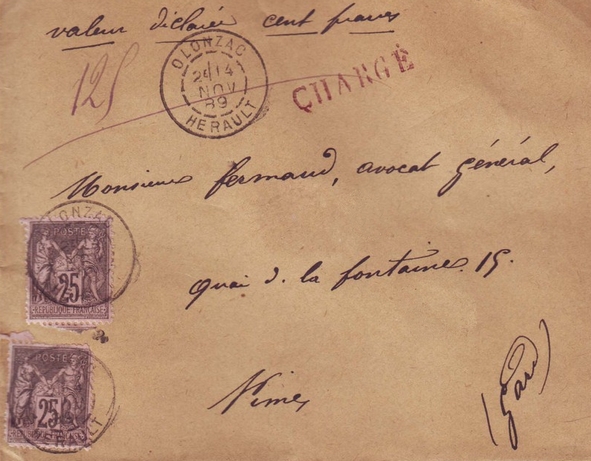 valeur déclarée cent francs
125
OLONZAC
24 14
NOV
89
HERAULT
CHARGÉ
Monsieur fermaud, avocat général,
quai d. la fontaine. 15.
Nimes
(Gard)
OLONZAC
POSTES
25
REPUBLIQUE FRANÇAISE
POSTES
25
HERAULT